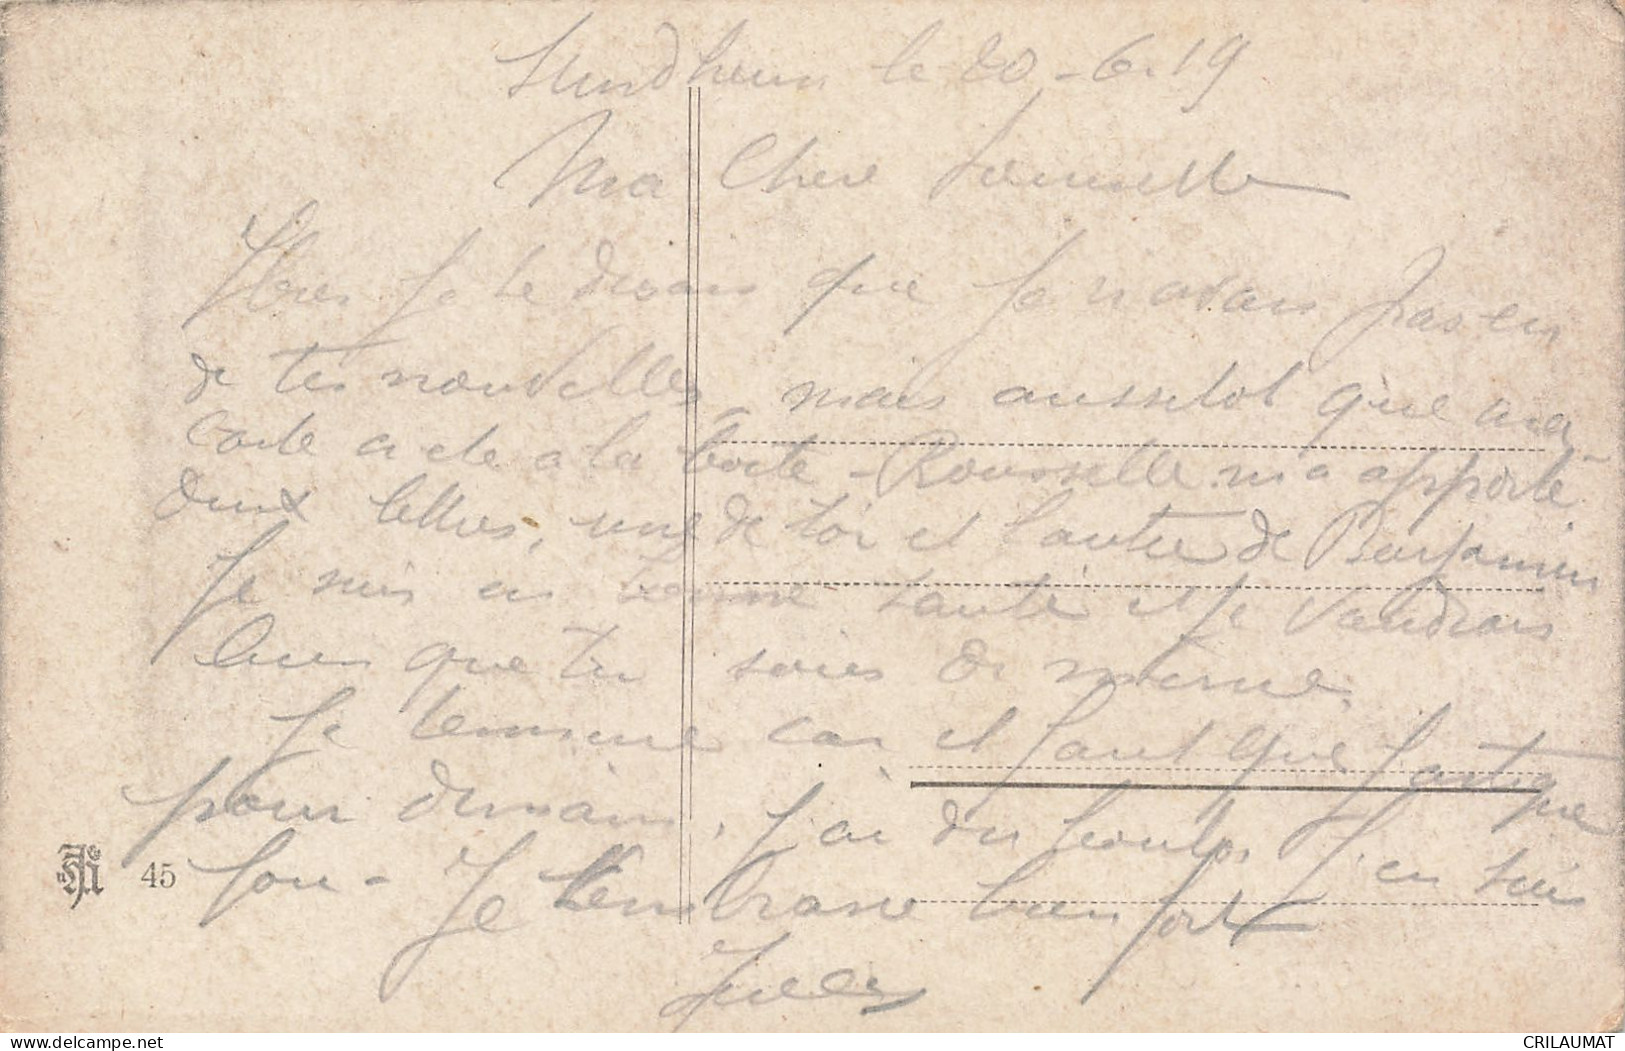 Sundheim le 20-6-19
Ma Chere Jeannette
Hier je te disais que je n'avais pas eu
de tes nouvelles, mais aussitot que ma
carte a ete a la boite - Rousselle m'a apporté
deux lettres, une de toi et l'autre de Benjamin
Je suis en bonne santé et je voudrais
bien que tu sois de meme.
Je termine car il faut que j'astique
pour demain. J'ai du boulot j'en suis
fou - Je t'embrasse bien fort
Jules
45
CRILAUMAT